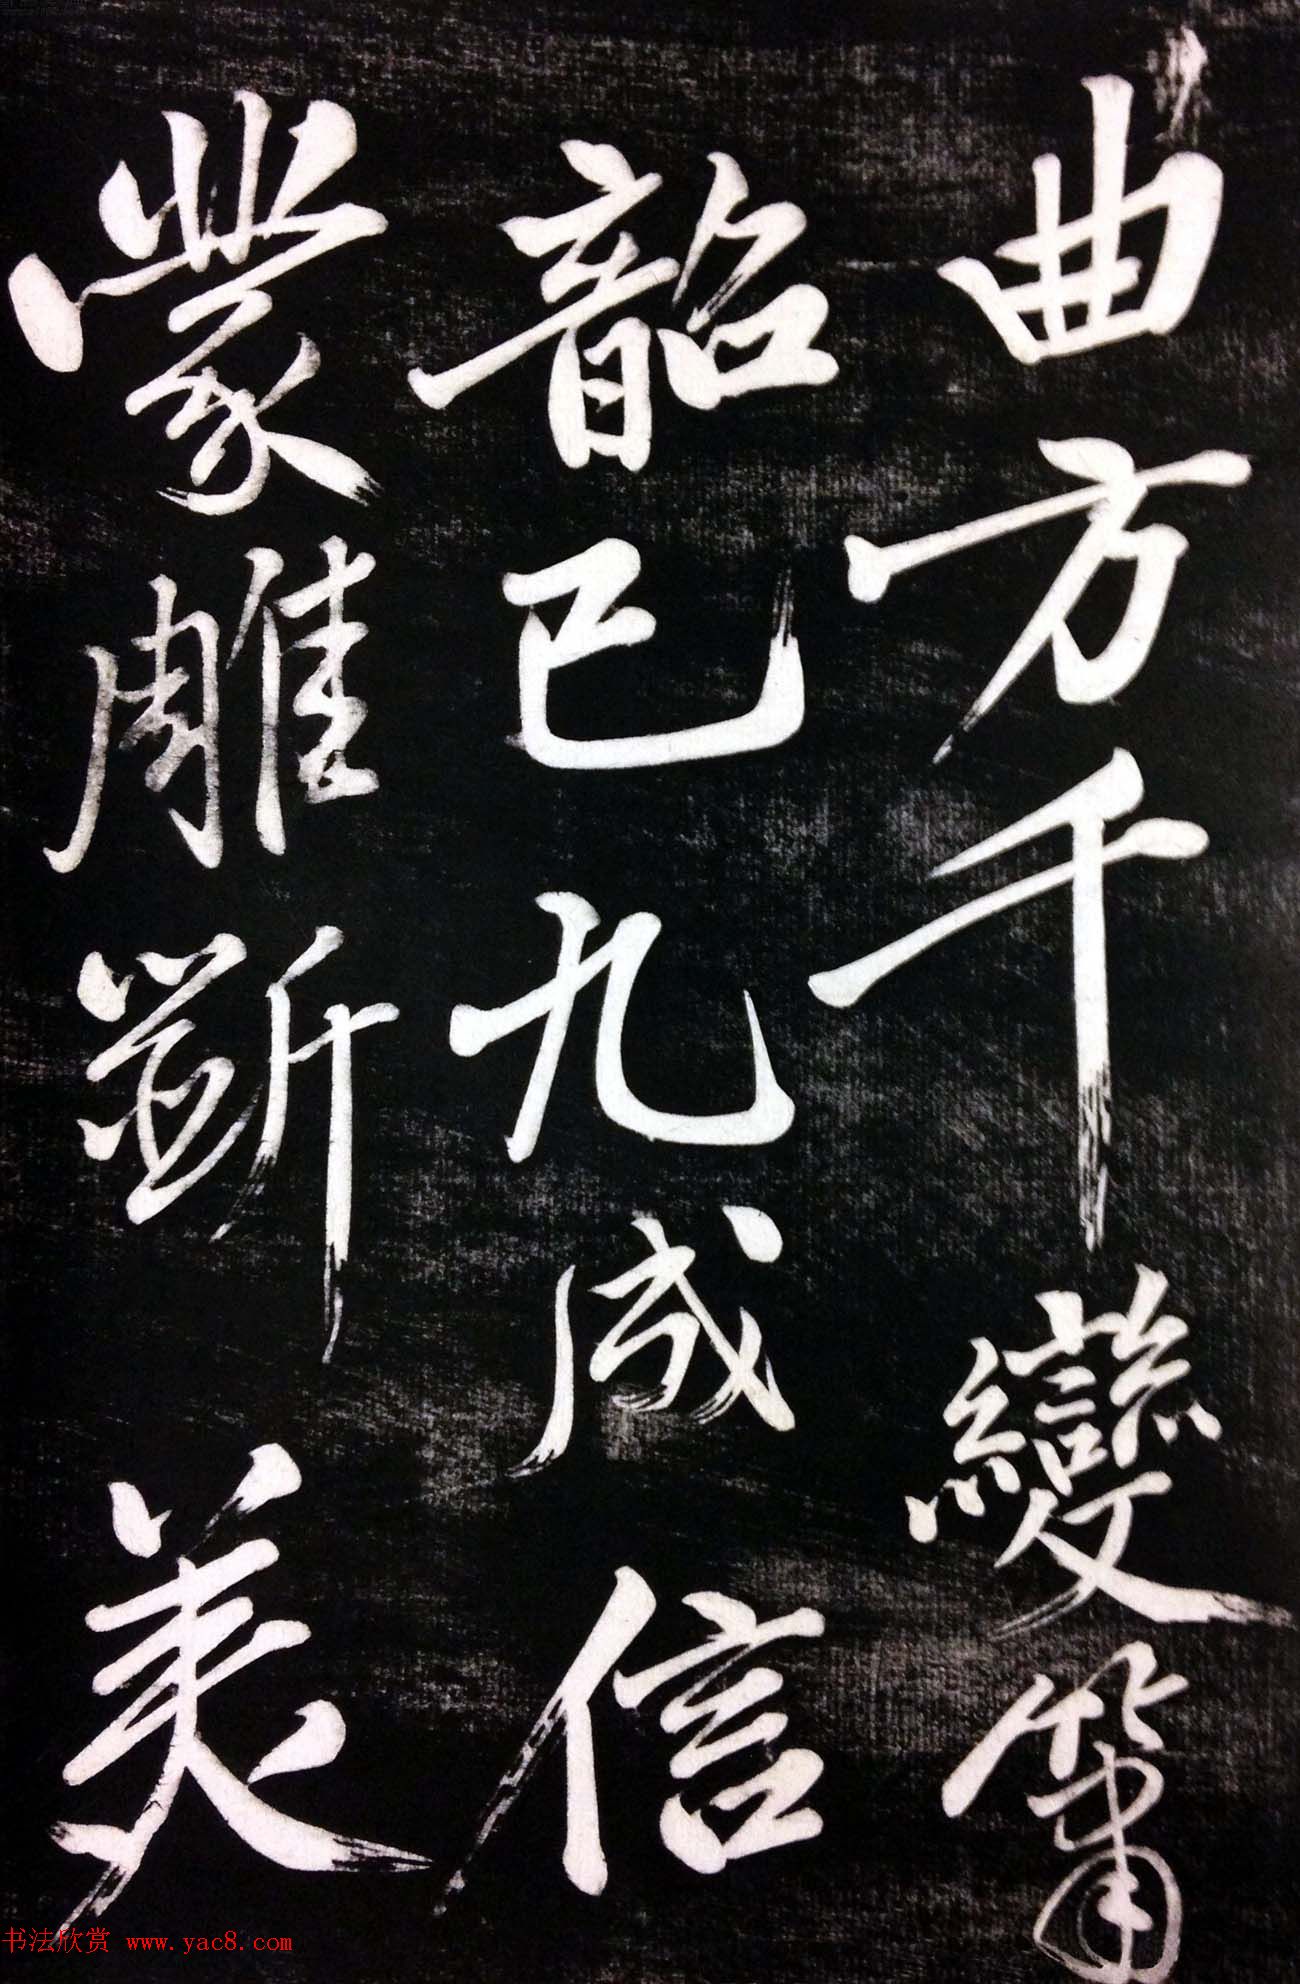 曲方千變簫
韶已九成信
蒙雕斵美
书法欣赏 www.yac8.com